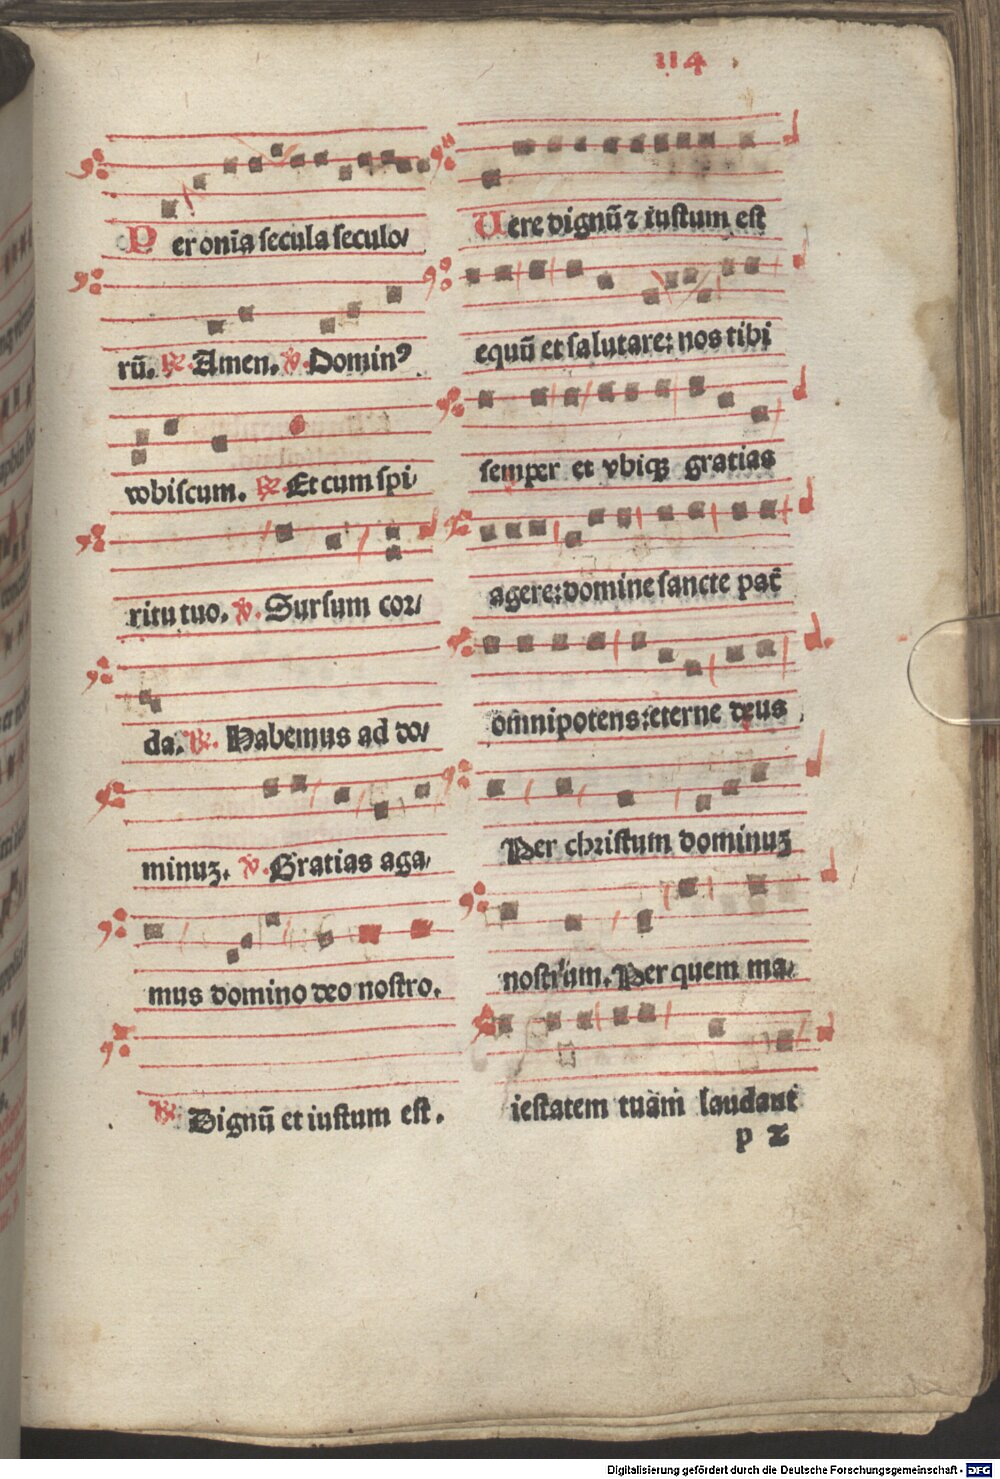 114
Per onia secula seculo/
rū. ℟. Amen. ℣. Dominꝰ
vobiscum. ℟. Et cum spi/
ritu tuo. ℣. Sursum cor/
da. ℟. Habemus ad do/
minuꝫ. ℣. Gratias aga/
mus domino deo nostro.
℟. Dignū et iustum est.
Uere dignū ⁊ iustum est
equū et salutare: nos tibi
semper et vbiqꝫ gratias
agere: domine sancte pat̄
omnipotens: eterne deus
Per christum dominuꝫ
nostrum. Per quem ma/
iestatem tuam laudant
p 2
Digitalisierung gefördert durch die Deutsche Forschungsgemeinschaft - DFG